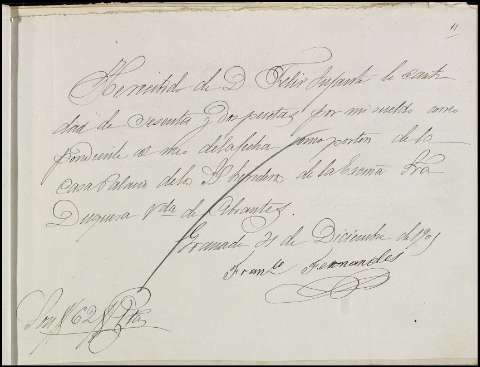 11
He recibido de D. Felix Infante la canti
dad de sesenta y dos pesetas por mi sueldo corres
pondiente al mes de la fecha como portero de la
Casa Palacio de los de la Exma Sra
Duquesa Vda de Abrantes.
Granada 31 de Diciembre de 190
Franco Fernandes
Son 62 Ptas